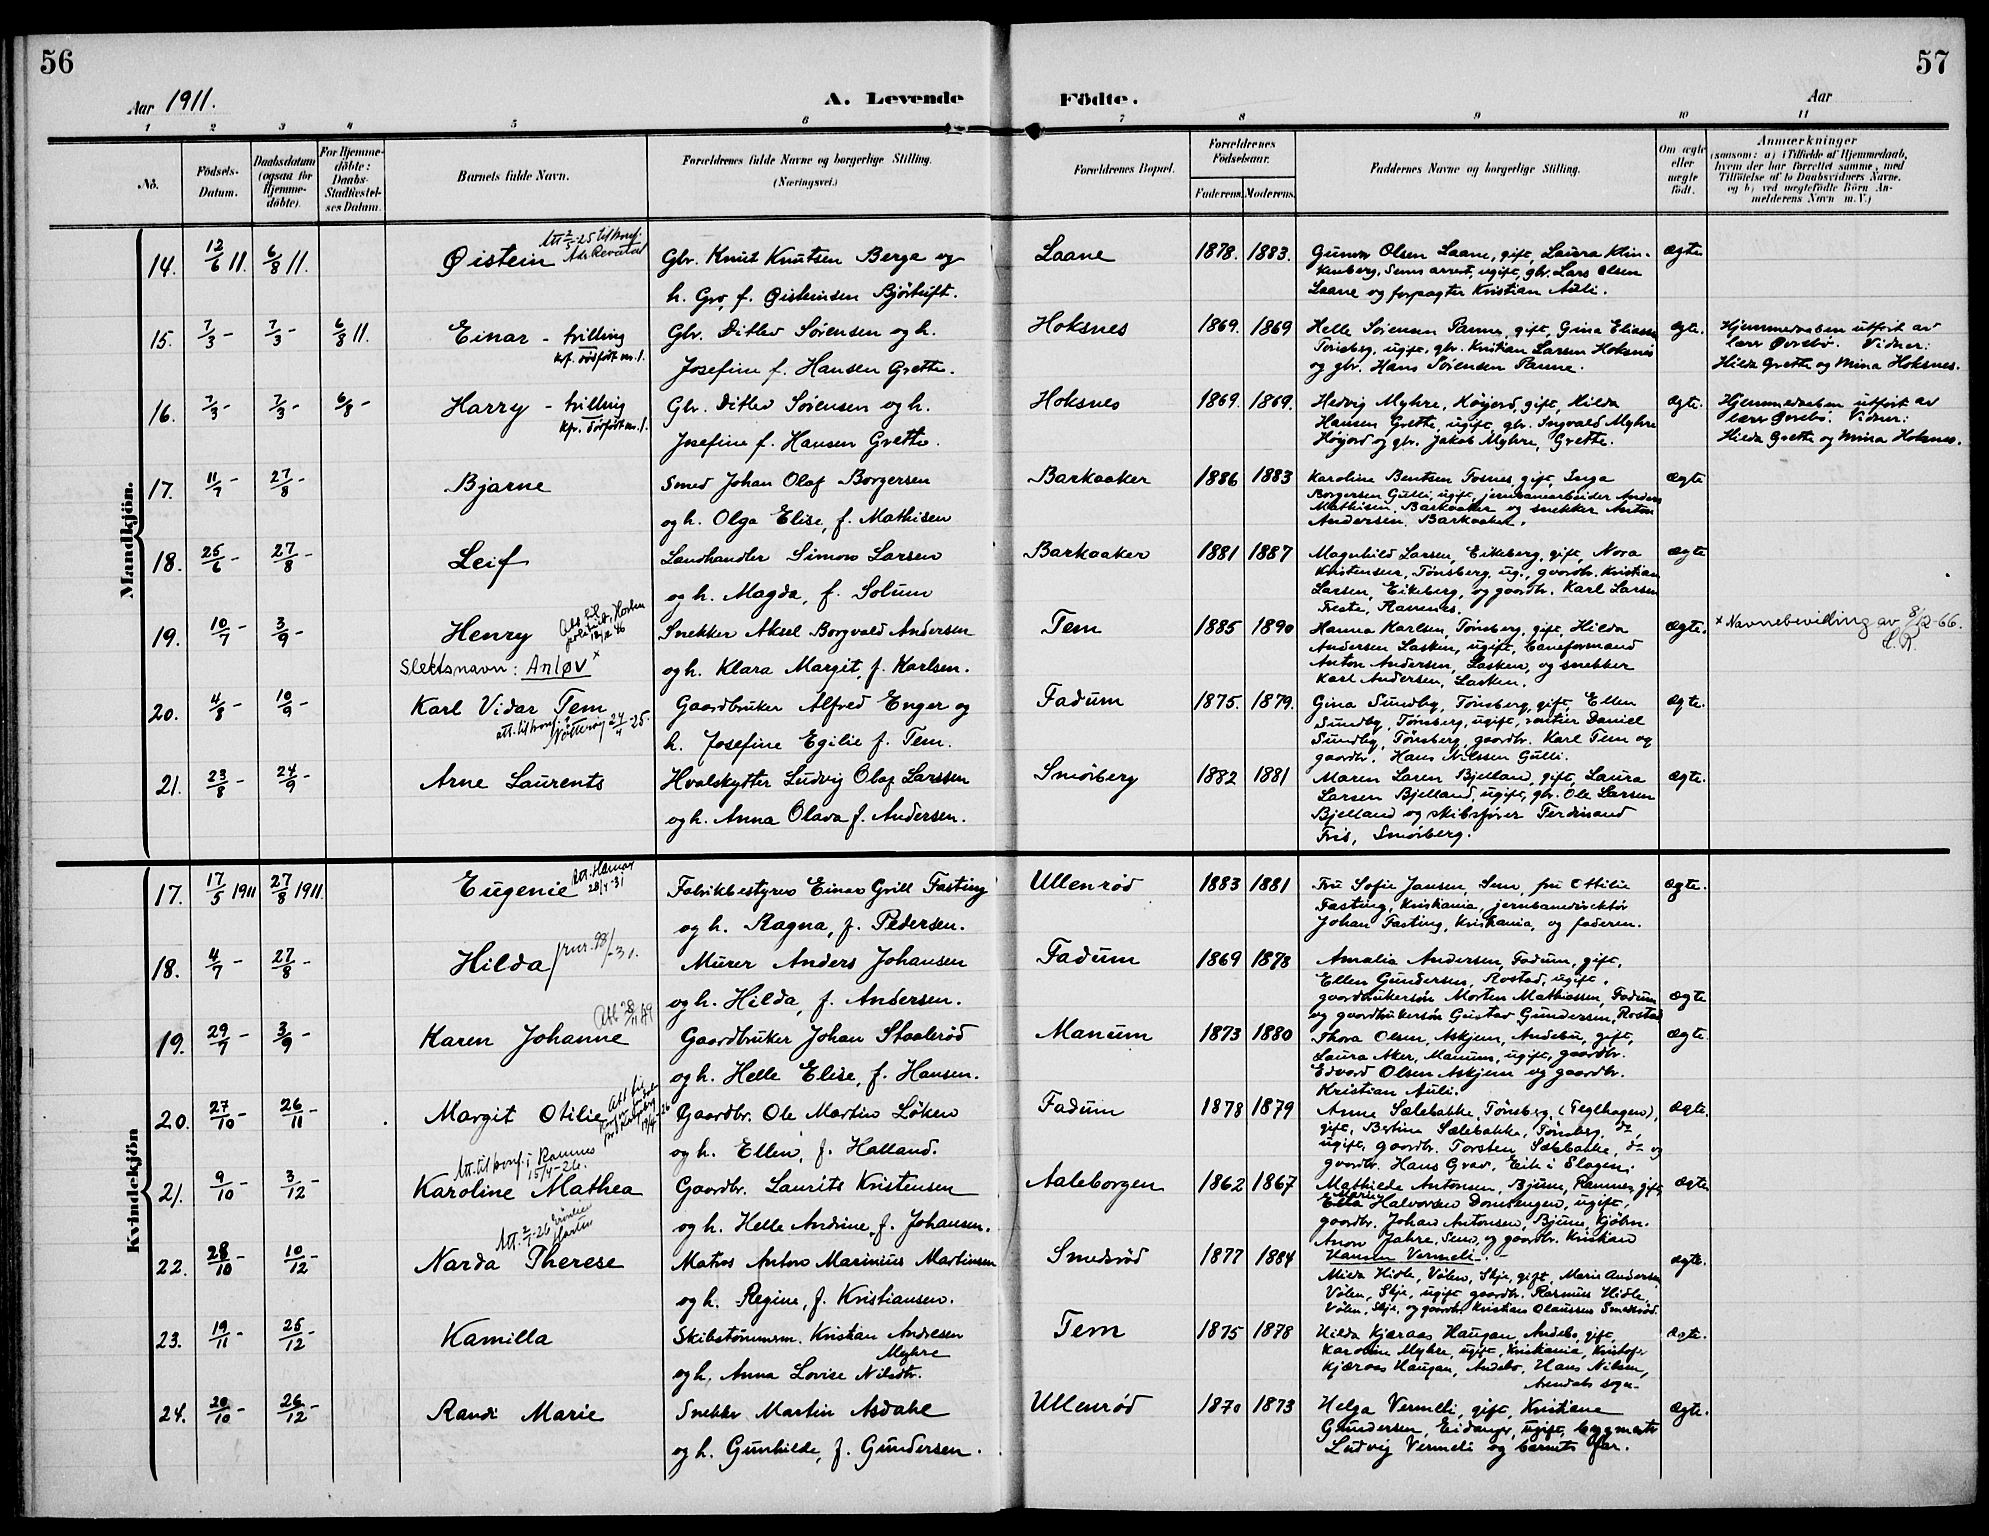 56
57
Aar 1911.
A. Levende
Födte.
Aar
1 2 3 4 5 6 7 8 9 10 11
No.
Födsels-Datum.
Daabsdatum (ogsaa for Hjemmedöbte).
For Hjemmedöbte: Daabs-Stadfæstelses Datum.
Barnets fulde Navn.
Forældrenes fulde Navne og borgerlige Stilling. (Næringsvei.)
Forældrenes Bopæl.
Forældrenes Födselsaar.
Faderens. Moderens.
Faddernes Navne og borgerlige Stilling.
Om ægte eller uægte födt.
Anmærkninger
(saasom: a) i Tilfælde af Hjemmedaab, hvem der har forrettet samme, med Tilföielse af to Daabsvidners Navne, og b) ved uægtefödte Börn Anmelderens Navn m. V.)
Mandkjön.
14. 12/6 11. 6/8 11. Øistein
Att 2/5-25 til konf.
Gbr. Knut Knutsen Berge og
h. Gro, f. Øisteinsen Bjørtuft.
Laane 1878. 1883.
Gunvor Olsen Laane, gift, Laura Klin-
kenberg, Sems arrest, ugift, gbr. Lars Olsen
Laane og forpagter Kristian Auli.
ægte.
15. 7/3 - 7/3 - 6/8 11. Einar - trilling
kfr. dødfødt nr. 1.
Gbr. Ditlev Sørensen og h.
Josefine f. Hansen Grette.
Hoksnes 1869. 1869
Helle Sørensen Ranne, gift, Gina Eliassen
Tønsberg, ugift, gbr. Kristian Larsen Hoksnes
og gbr. Hans Sørensen Ranne.
ægte.
Hjemmedaaben utført av
lærer Øvrebø. Vidner:
Hilda Grette og Mina Hoksnes.
16. 7/3 - 7/3 - 6/8 - Harry - trilling
Kfr. dødfødt nr. 1.
Gbr. Ditlev Sørensen og h.
Josefine f. Hansen Grette.
Hoksnes 1869. 1869.
Hedvig Myhre, Høyjord, gift, Hilda
Hansen Grette, ugift, gbr. Ingvald Myhre
Høijord og gbr. Jakob Myhre, Grette.
ægte.
Hjemmedaaben utført av
lærer Øvrebø. Vidner:
Hilda Grette og Mina Hoksnes.
17. 11/7 - 27/8 - Bjarne
Smed Johan Olaf Borgersen
og h. Olga Elise, f. Mathisen
Barkaaker 1886 1883
Karoline Bentsen Fosnes, gift, Inga
Borgersen Gulli, ugift, jernbanearbeider Anders
Mathisen, Barkaaker og snekker Anton
Andersen Barkaaker.
ægte
18. 25/6 - 27/8 - Leif
Landhandler Simon Larsen
og h. Magda, f. Solum
Barkaaker 1881 1887
Magnhild Larsen, Eikeberg, gift, Nora
Kristensen, Tønsberg, ug., gaardbr. Kristian
Larsen, Eikeberg, og gaardbr. Karl Larsen
Freste, Ramnes.
ægte
19. 10/7 - 3/9 - Henry
Slektsnavn: Anløv x
Snekker Aksel Borgvald Andersen
og h. Klara Margit, f. Karlsen.
Tem 1885 1890
Hanna Karlsen, Tønsberg, gift, Hilda
Andersen Lasken, ugift, baneformand
Anton Andersen, Lasken, og snekker
Karl Andersen, Lasken.
ægte.
x Navnebevilling av 8/12-66.
20. 4/8 - 10/9 - Karl Vidar Tem
att. til konf. i Nøtterøy 24/4-25.
Gaardbruker Alfred Enger og
h. Josefine Egilie f. Tem.
Fadum 1875. 1879.
Gina Sundby, Tønsberg, gift, Ellen
Sundby, Tønsberg, ugift, rentier Daniel
Sundby, Tønsberg, gaardbr. Karl Tem og
gaardbr. Hans Nilssen Gulli.
ægte.
21. 23/8 - 24/9 - Arne Laurents
Hvalskytter Ludvig Olaf Larssen
og h. Anna Olava f. Andersen.
Smørberg 1882 1881
Maren Laren Bjelland, gift, Laura
Larsen Bjelland, ugift, gbr. Ole Larsen
Bjelland og skibsfører Ferdinand
Fris, Smørberg.
ægte.
Kvindekjön
17. 17/5 1911 27/8 1911. Eugenie
Att. Hamar 28/4-31
Fabrikbestyrer Einar Grill Fasting
og h. Ragna, f. Pedersen.
Ullenrød 1883 1881
Fru Sofie Jansen, Sem, fru Ottilie
Fasting, Kristiania, jernbanedirektør
Johan Fasting, Kristiania, og faderen.
ægte.
18. 4/7 - 27/8 - Hilda
Murer Anders Johansen
og h. Hilda, f. Andersen.
Fadum 1869 1878
Amalia Andersen, Fadum, gift,
Ellen Gundersen, Rostad, ugift,
gaardbrukersøn Morten Mathiassen, Fadum
og gaardbrukersøn Gustav Gundersen, Rostad
ægte
19. 29/7 - 3/9 - Karen Johanne
Gaardbruker Johan Staalerød
og h. Helle Elise, f. Hansen.
Manum 1873 1880
Thora Olsen, Askjem, Andebu, gift,
Laura Aker, Manum, ugift, gaardbr.
Edvard Olsen Askjem og gaardbr.
Kristian Auli.
ægte.
20. 27/10 - 26/11 - Margit Otilie
Gaardbr. Ole Martin Løken
og h. Ellen, f. Halland.
Fadum 1878 1879
Anna Sælebakke, Tønsberg, (Teglhagen),
gift, Bertina Sælebakke, Tønsberg, do
ugift, gaardbr. Torsten Sælebakke, do og
gaardbr. Hans Grav, Eik i Slagen.
ægte.
21. 9/10 - 3/12 - Karoline Mathea
Att. til konf. i Ramnes 15/4-26.
Gaardbr. Laurits Kristensen
og h. Helle Andrine f. Johansen.
Aaleborgen 1862 1867
Mathilde Antonsen, Bjune, Ramnes, gift,
Marie Halvorsen Domsengen, ugift,
gaardbr. Johan Antonsen, Bjune, kjøbm.
Anon Jahre, Sem, og gaardbr. Kristian
Hansen Vermeli.
ægte
22. 28/10 - 10/12 - Narda Therese
Matros Anton Marinius Martinsen
og h. Regine, f. Kristiansen.
Smedsrød 1877 1884
Milda Hidle, Vølen, Skje, gift, Marie Andersen,
Vølen, Skje, ugift gaardbr. Rasmus Hidle,
Vølen, Skje, og gaardbr. Kristian Olaussen Smedsrød.
ægte.
23. 19/11 - 25/12 - Kamilla
Skibstømmerm. Kristian Andresen
Myhre
og h. Anna Lovise Nilsdtr.
Tem 1875 1878
Hilda Kjæraas Haugan, Andebo, gift,
Karoline Myhre, ugift, Kristiania, Kristofer
Kjæraas Haugan, Andebo, Hans Nilsen,
Arendals sogn
ægte.
24. 20/10 - 26/12 - Randi Marie
Snekker Martin Asdahl
og h. Gunhilde, f. Gundersen.
Ullenrød 1870 1873
Helga Vermeli, gift, Kristiane
Gundersen, Eidanger, ugift, byggmester
Ludvig Vermeli og barnets far.
ægte.